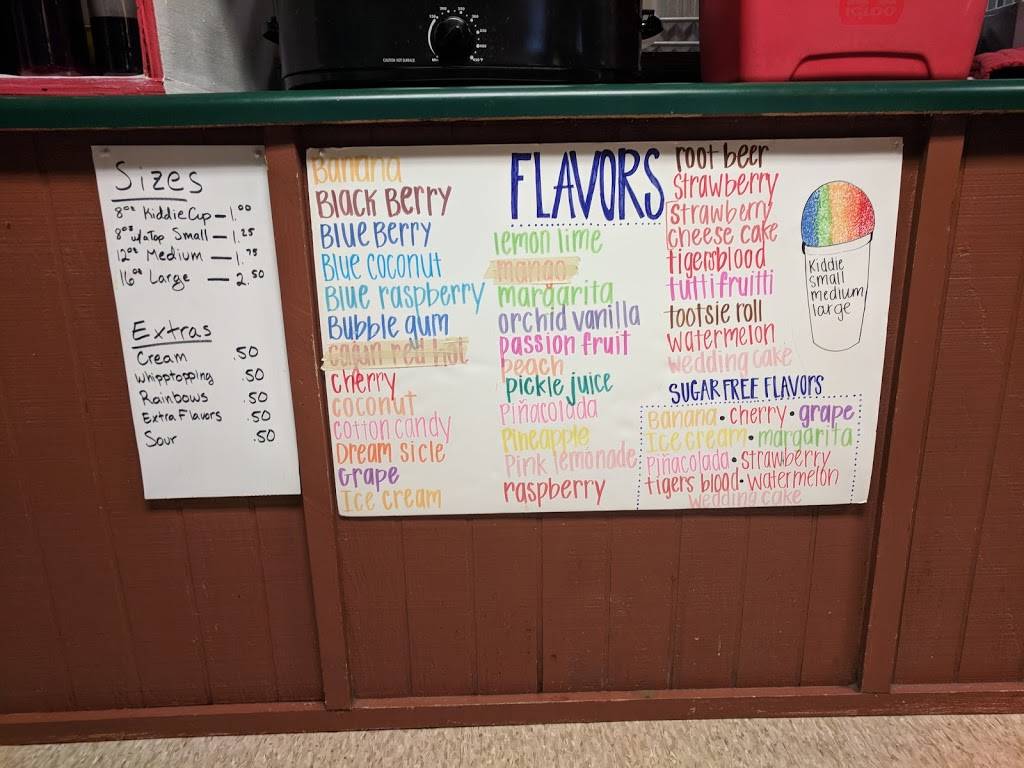 IGLOO
Sizes
8oz Kiddie Cup — 1.00
8oz w/a Top Small — 1.25
12oz Medium — 1.75
16oz Large — 2.50
Extras
Cream .50
Whipptopping .50
Rainbows .50
Extra Flavors .50
Sour .50
FLAVORS
Banana
Black Berry
Blue Berry
Blue coconut
Blue raspberry
Bubble gum
cajun red hot
cherry
coconut
cotton candy
Dream sicle
Grape
Ice cream
lemon lime
mango
margarita
orchid vanilla
passion fruit
peach
pickle juice
Piñacolada
Pineapple
Pink lemonade
raspberry
root beer
strawberry
strawberry
cheese cake
tigersblood
tuttifruitti
tootsie roll
watermelon
wedding cake
SUGAR FREE FLAVORS
Banana • cherry • grape
Ice cream • margarita
piñacolada • strawberry
tigers blood • watermelon
wedding cake
Kiddie
small
medium
large